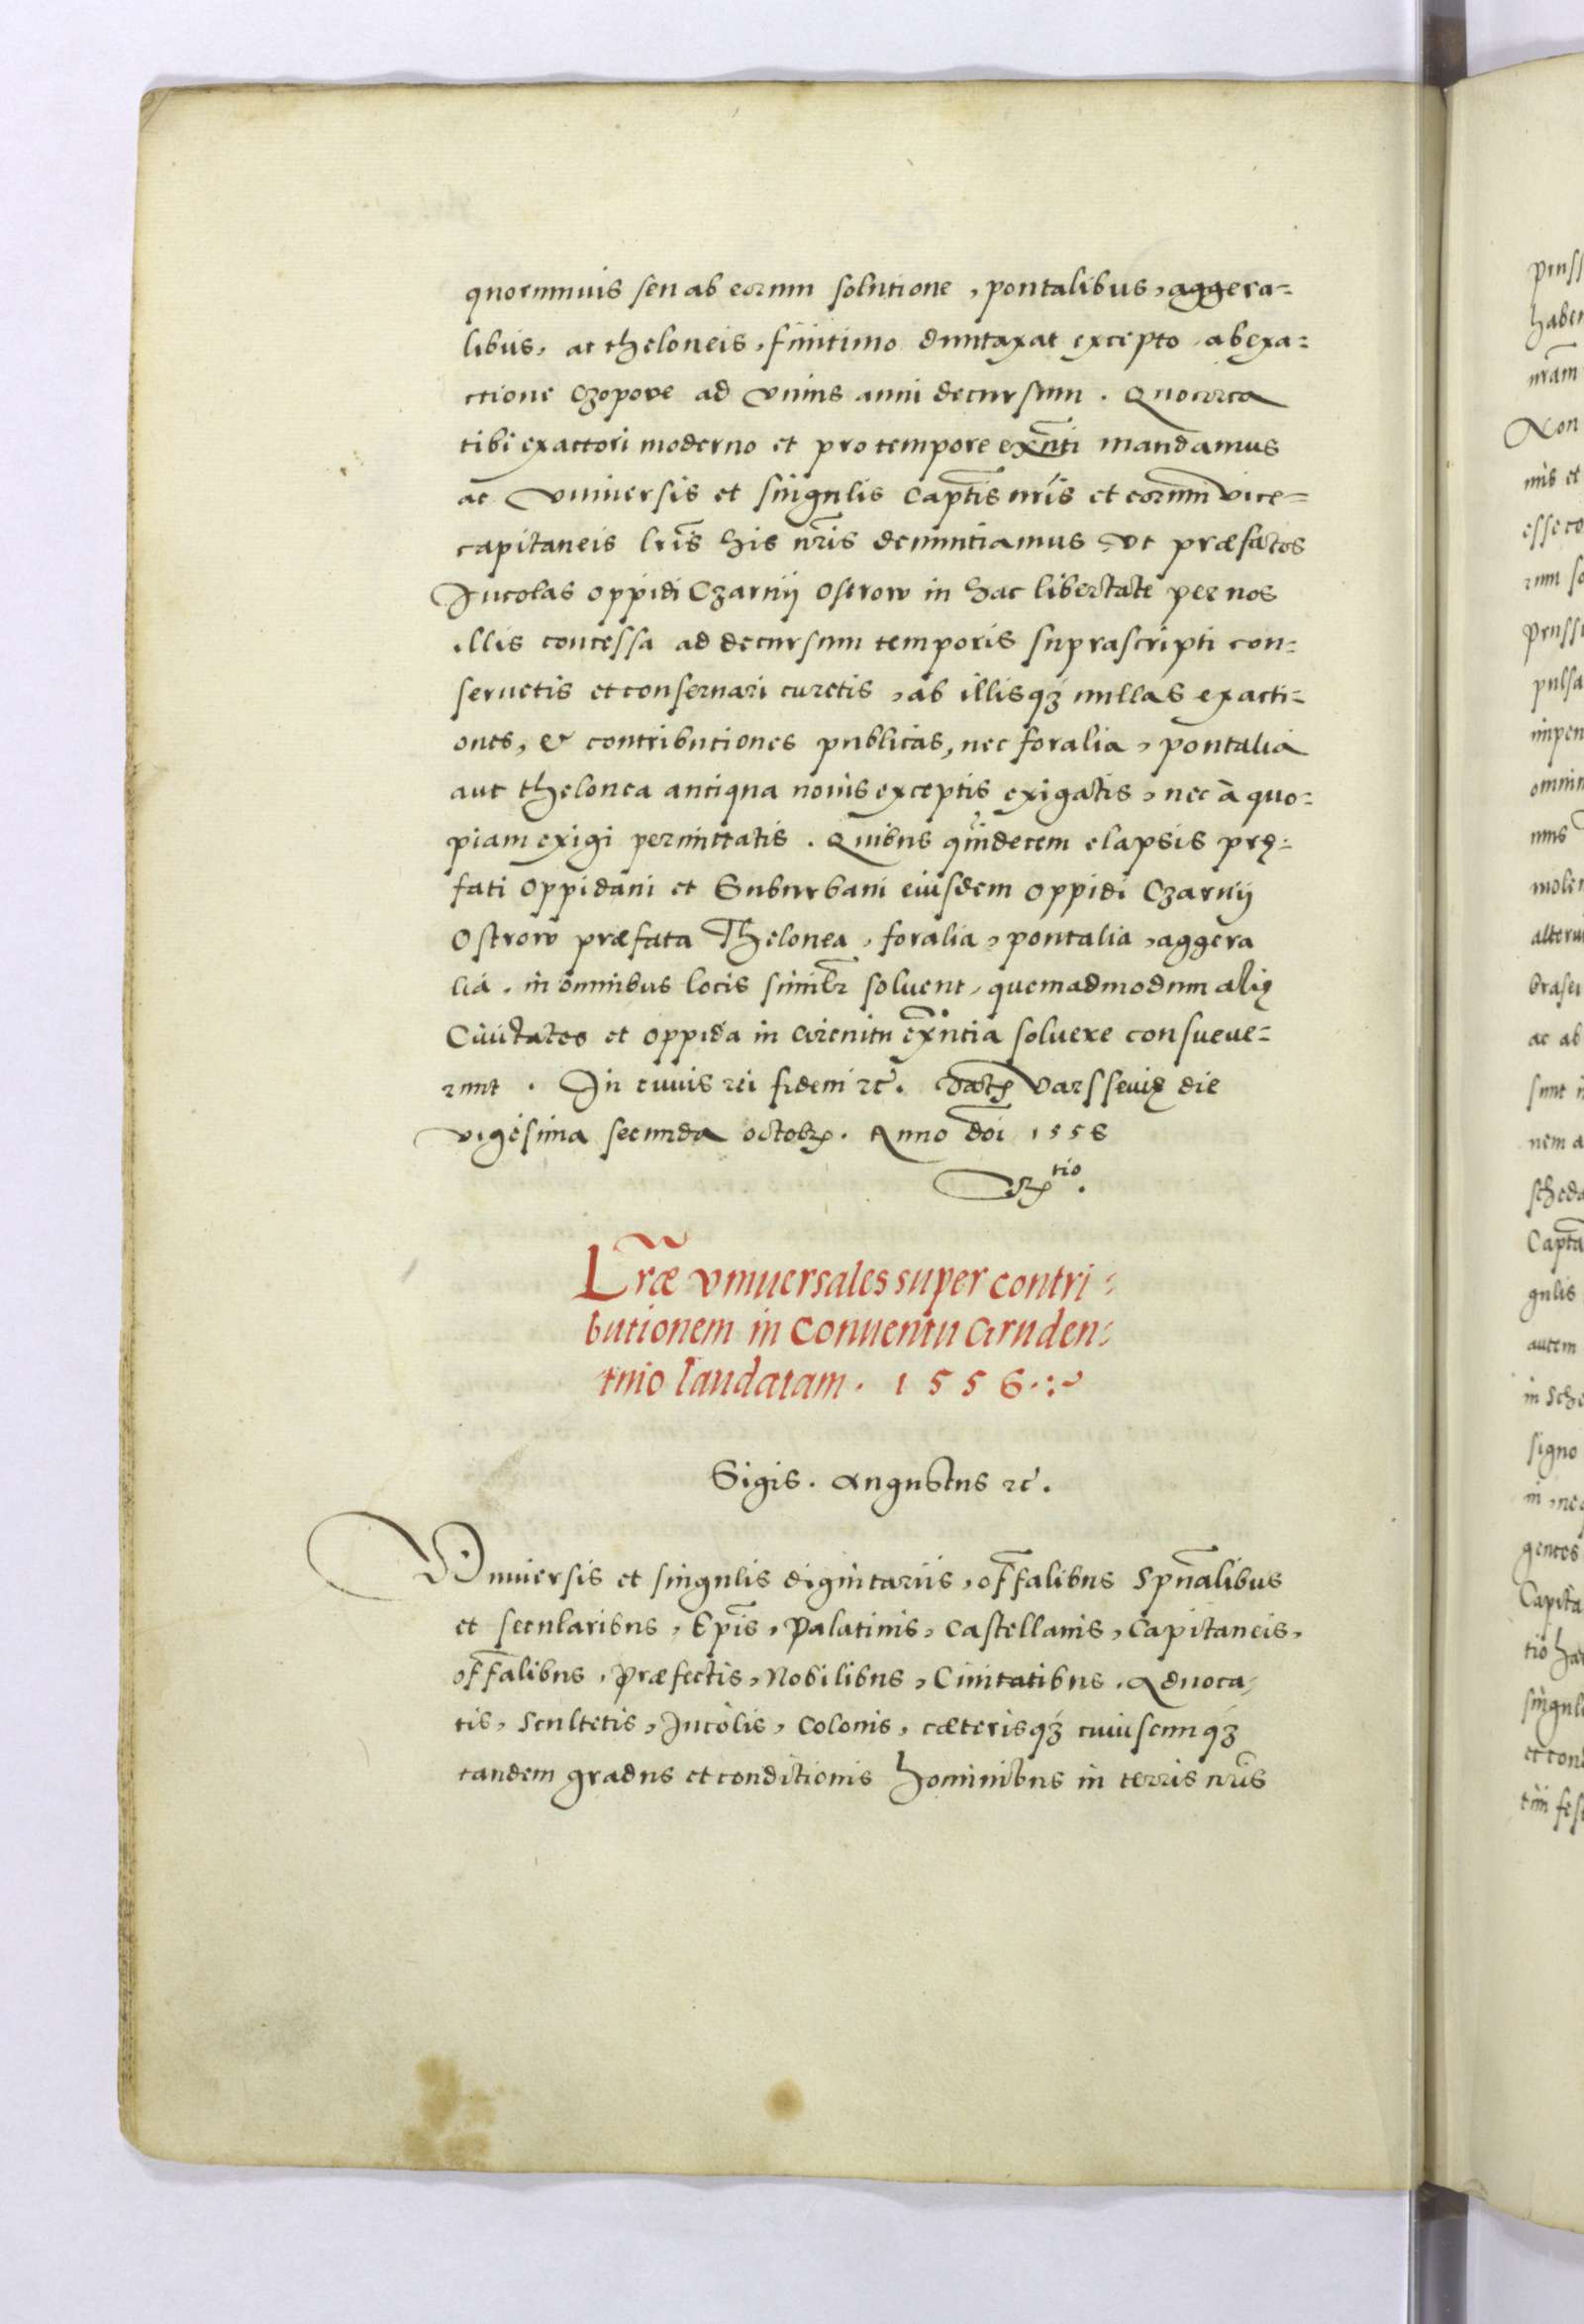 quorumuis seu ab eorum solutione, pontalibus, aggera=
libus, ac theloneis, finitimo duntaxat excepto ab exa=
ctione Czopove ad vnius anni decursum. Quocirca
tibi exactori moderno et pro tempore exñti mandamus
ac vniuersis et singulis Captis nr̃is et eorum vice=
capitaneis lr̃is his nr̃is denuntiamus vt præfatos
Incolas oppidi Czarnij Ostrow in hac libertate per nos
illis concessa ad decursum temporis suprascripti con=
seruetis et conseruari curetis, ab illisqꝫ nullas exacti=
ones, & contributiones publicas, nec foralia, pontalia
aut thelonea antiqua nouis exceptis exigatis, nec à quo=
piam exigi permittatis. Quibus quindecem elapsis prę=
fati Oppidani et Suburbani eiusdem oppidi Czarnij
Ostrow præfata Thelonea, foralia, pontalia, aggera
lia. in omnibus locis similr̃ soluent, quemadmodum alię
Ciuitates et oppida in circuitu exñtia soluere consueue=
runt. In cuius rei fidem ꝛc̃. Dat̃ Varsseuię die
vigesima secunda octobr̃. Anno dñi 1556
Rtio.
Lr̃æ vniuersales super contri=
butionem in Conuentu Gruden=
tinio laudatam. 1556.
Sigis. Augustus ꝛc̃.
Vniuersis et singulis dignitariis, off̃alibus Spñalibus
et secularibus, Ep̃is, Palatinis, Castellanis, Capitaneis,
off̃alibus, Præfectis, Nobilibus, Ciuitatibus. Aduoca=
tis, Scultetis, Incolis, Colonis, cæterisqꝫ cuiuscunqꝫ
tandem gradus et conditionis hominibus in terris nr̃is